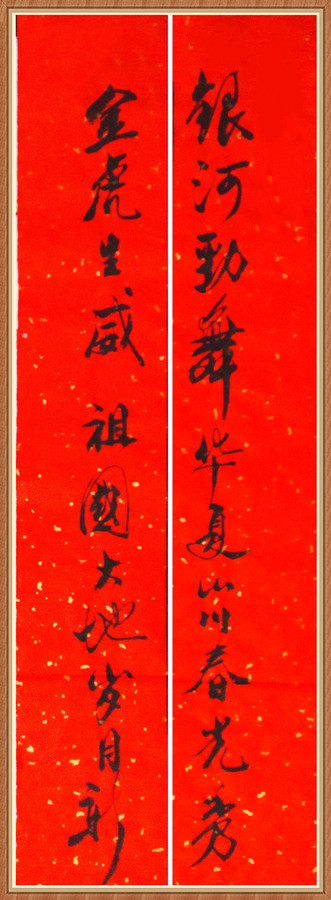 银河劲舞华夏山川春光秀
金虎生威祖國大地岁月新